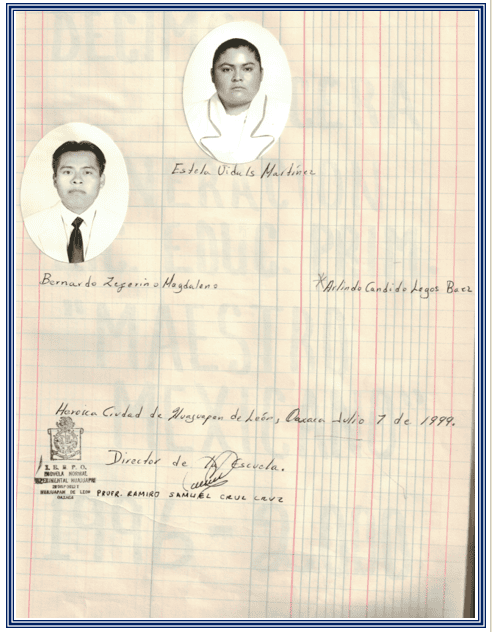 Estela Viduls Martínez
Bernardo Zeferino Magdaleno
*Arlindo Candido Lagos Baez
Heroica Ciudad de Huajuapan de León, Oaxaca Julio 7 de 1999.
Director de la Escuela.
I. E. E. P. O.
ESCUELA NORMAL
EXPERIMENTAL HUAJUAPAN
HUAJUAPAN DE LEON
OAXACA
PROFR. RAMIRO SAMUEL CRUZ CRUZ